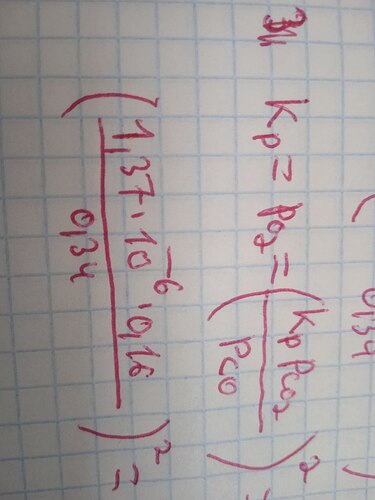 31
Kp = PO2 = (Kp PCO2 / PCO)^2
(1,37 · 10^-6 · 0,16 / 0,34)^2 =
0,34